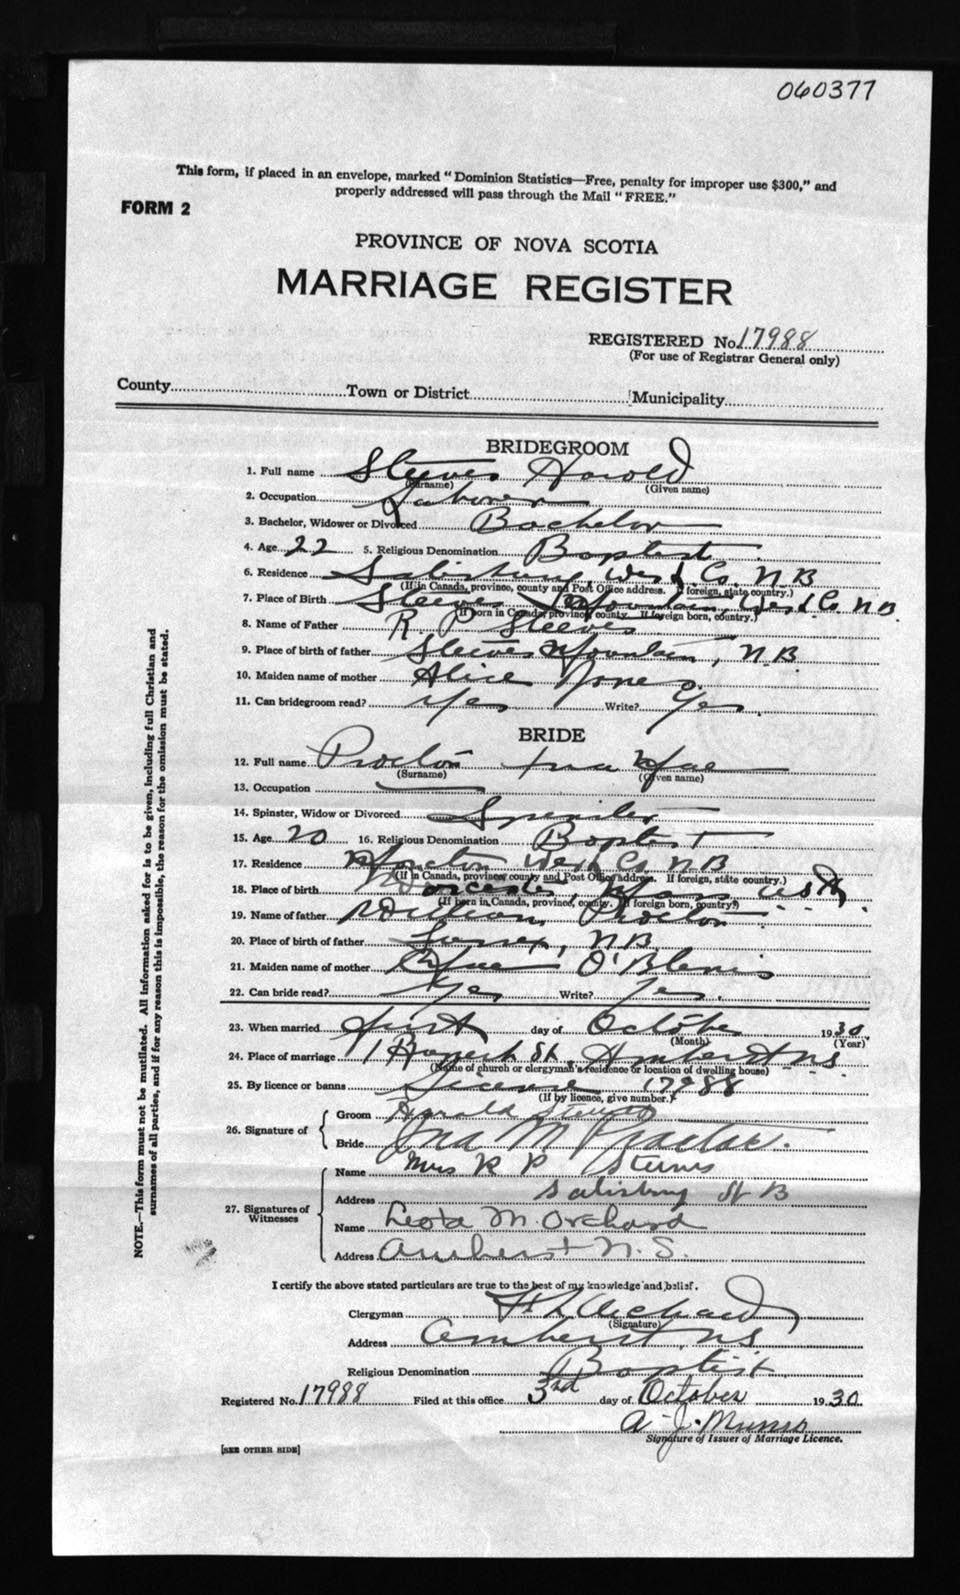 060377
This form, if placed in an envelope, marked "Dominion Statistics—Free, penalty for improper use $300," and
properly addressed will pass through the Mail "FREE."
FORM 2
PROVINCE OF NOVA SCOTIA
MARRIAGE REGISTER
REGISTERED No. 17988
(For use of Registrar General only)
County Town or District Municipality
BRIDEGROOM
1. Full name Steeves Harold
(Surname) (Given name)
2. Occupation Laborer
3. Bachelor, Widower or Divorced Bachelor
4. Age 22 5. Religious Denomination Baptist
6. Residence Salisbury West Co. N B
(If in Canada, province, county and Post Office address. If foreign, state country.)
7. Place of Birth Steeves Mountain, West Co N B.
(If born in Canada, province, county. If foreign born, country.)
8. Name of Father R P Steeves
9. Place of birth of father Steeves Mountain, N B.
10. Maiden name of mother Alice Jones
11. Can bridegroom read? Yes Write? Yes.
BRIDE
12. Full name Procton Ina Mae
(Surname) (Given name)
13. Occupation
14. Spinster, Widow or Divorced Spinster
15. Age 20 16. Religious Denomination Baptist
17. Residence Moncton West Co. N B
(If in Canada, province, county and Post Office address. If foreign, state country.)
18. Place of birth Worcester, Mass U S A.
(If born in Canada, province, county. If foreign born, country?)
19. Name of father William Procton
20. Place of birth of father Sussex, N B.
21. Maiden name of mother Mae O'Blenis
22. Can bride read? Yes Write? Yes.
23. When married first day of October 1930
(Month) (Year)
24. Place of marriage 1 Rupert St, Amherst N S.
(Name of church or clergyman's residence or location of dwelling house)
25. By licence or banns License 17988
(If by licence, give number.)
26. Signature of
Groom Harold Steeves
Bride Ina M Procter.
27. Signatures of Witnesses
Name Mrs R P Steeves
Address Salisbury N B
Name Leota M. Orchard
Address Amherst N. S.
I certify the above stated particulars are true to the best of my knowledge and belief.
Clergyman Orchard
(Signature)
Address Amherst, N S
Religious Denomination Baptist
Registered No. 17988 Filed at this office 3rd day of October 1930
A. J. Munro
Signature of Issuer of Marriage Licence.
[SEE OTHER SIDE]
NOTE.—This form must not be mutilated. All information asked for is to be given, including full Christian and
surnames of all parties, and if for any reason this is impossible, the reason for the omission must be stated.